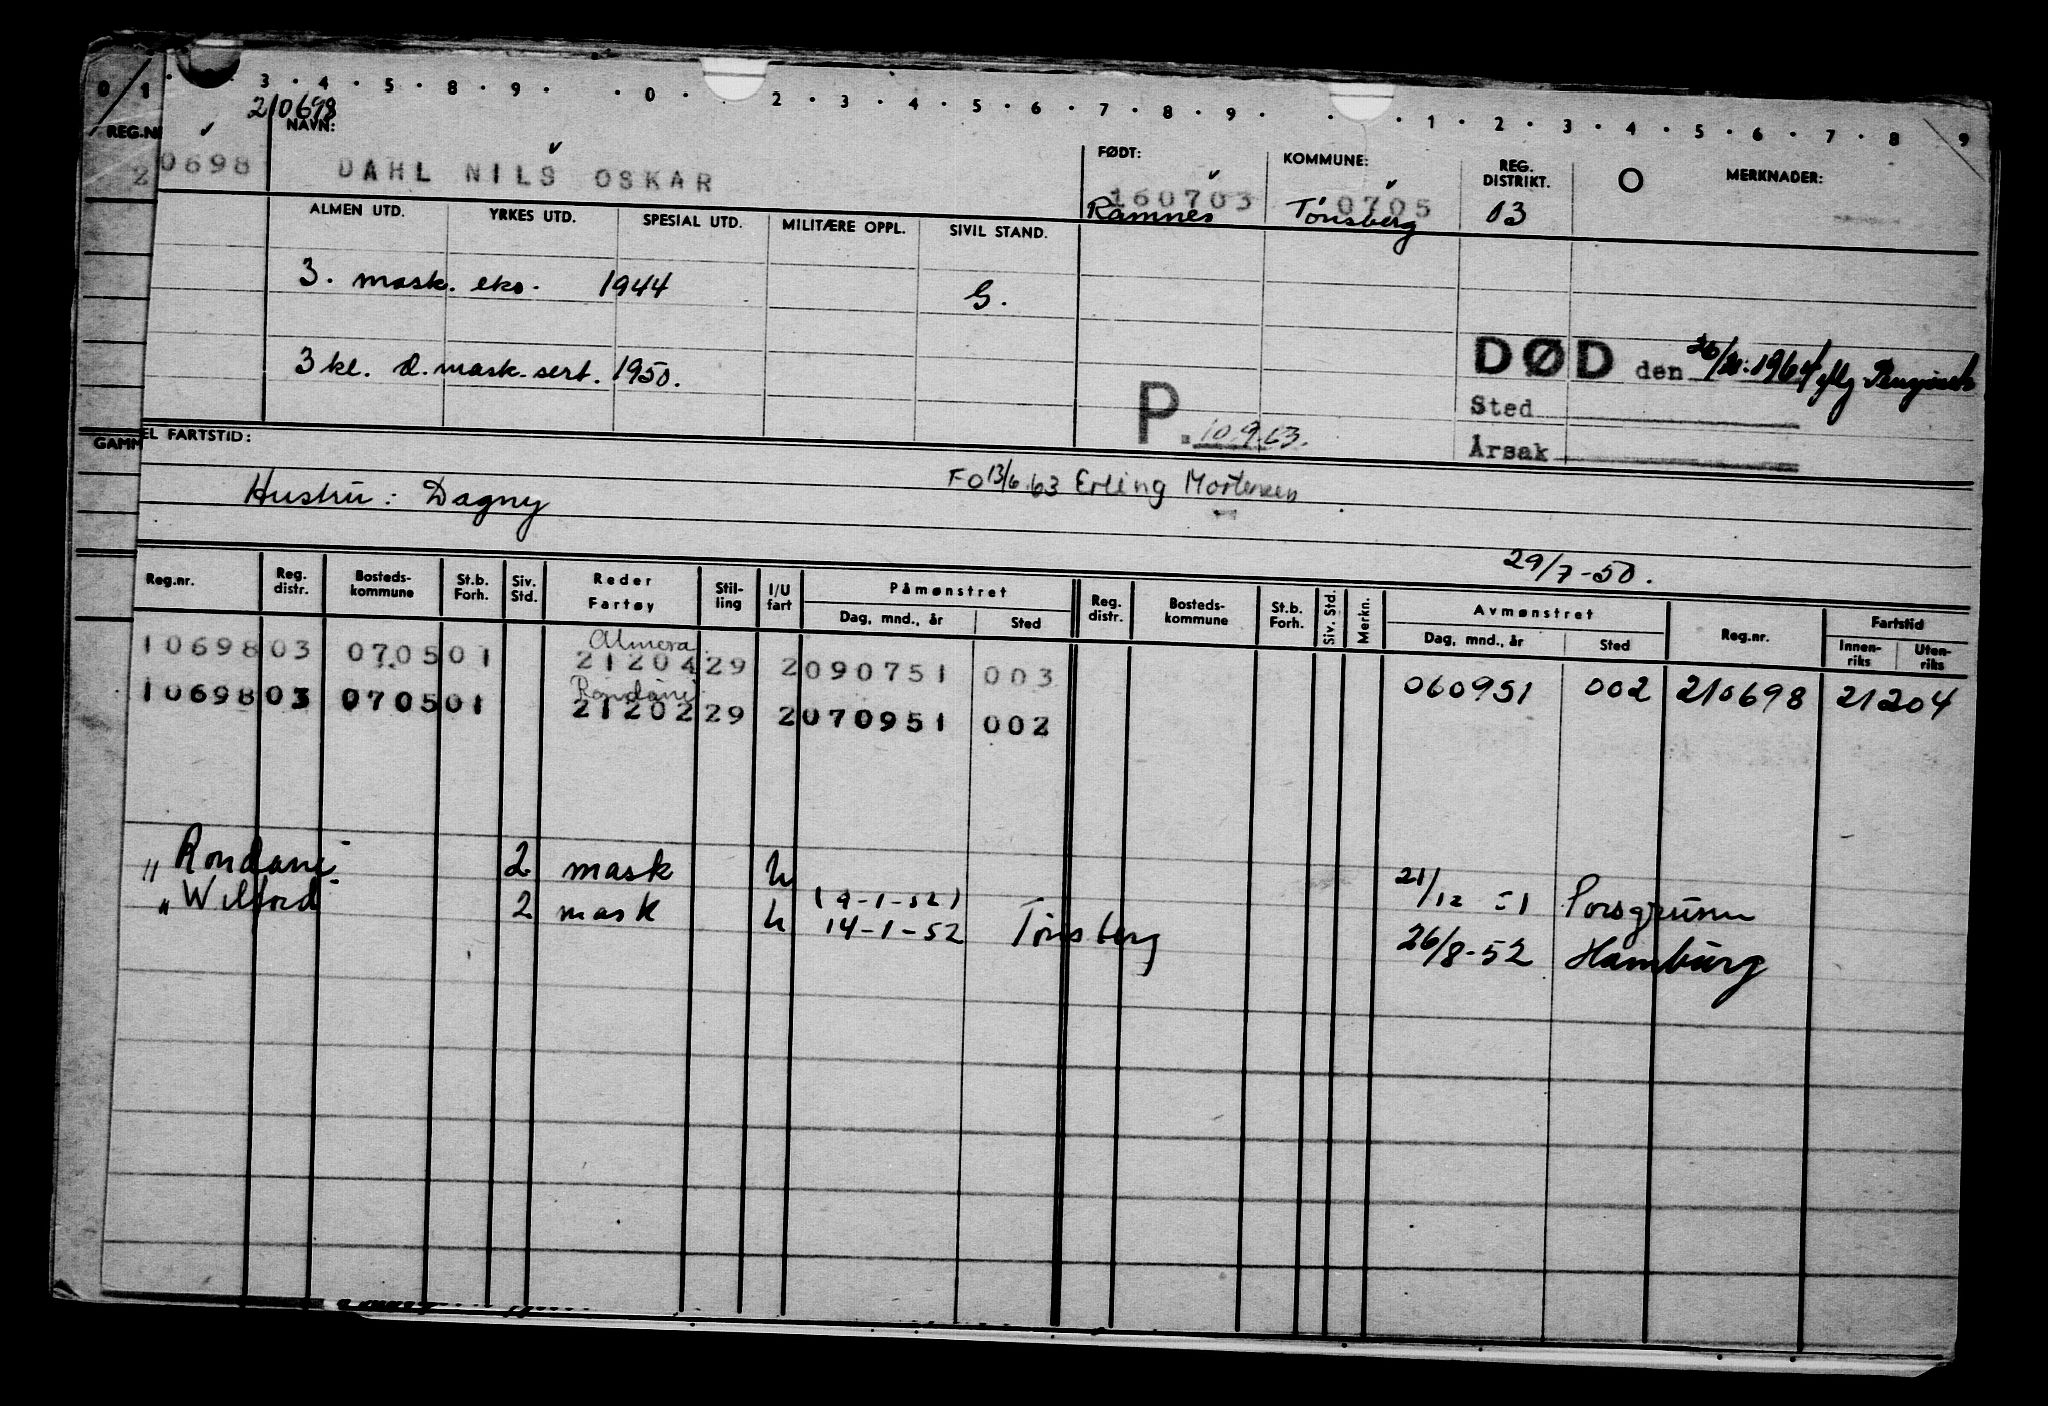 0 1 3 · 4 · 5 · 8 · 9 · · 0 · 2 · 3 · 4 · 5 · 6 · 7 · 8 · 9 · · 1 · 2 · 3 · 4 · 5 · 6 · 7 · 8 9
210698
REG.N NAVN: FØDT: KOMMUNE: REG. DISTRIKT. O MERKNADER:
2 0698 DAHL NILS OSKAR 160703 0705
Ramnes Tønsberg 03
ALMEN UTD. YRKES UTD. SPESIAL UTD. MILITÆRE OPPL. SIVIL STAND.
3. mask. eks. 1944 G.
DØD den 1964
3 kl. d. mask. sert. 1950.
Sted
P. 10.9.63.
Årsak
GAMM EL FARTSTID:
Hustru: Dagny FO 13/6.63 Erling Mortensen
29/7-50.
Reg.nr. Reg. distr. Bosteds- kommune St.b. Forh. Siv. Std. Reder Fartøy Stil- ling I/U fart Påmønstret Dag, mnd., år Sted Reg. distr. Bosteds- kommune St.b. Forh. Siv. Std. Merkn. Avmønstret Dag, mnd., år Sted Reg.nr. Fartstid Innen- riks Uten- riks
Almora
10698 03 0705 01 21204 29 2 090751 003 060951 002 210698 21204
Rondane
10698 03 0705 01 21202 29 2 070951 002
„ Rondane 2 mask u 21/12 51 Porsgrunn
„ Wilford 2 mask u (9-1-52)
14-1-52 Tønsberg 26/8-52 Hamburg